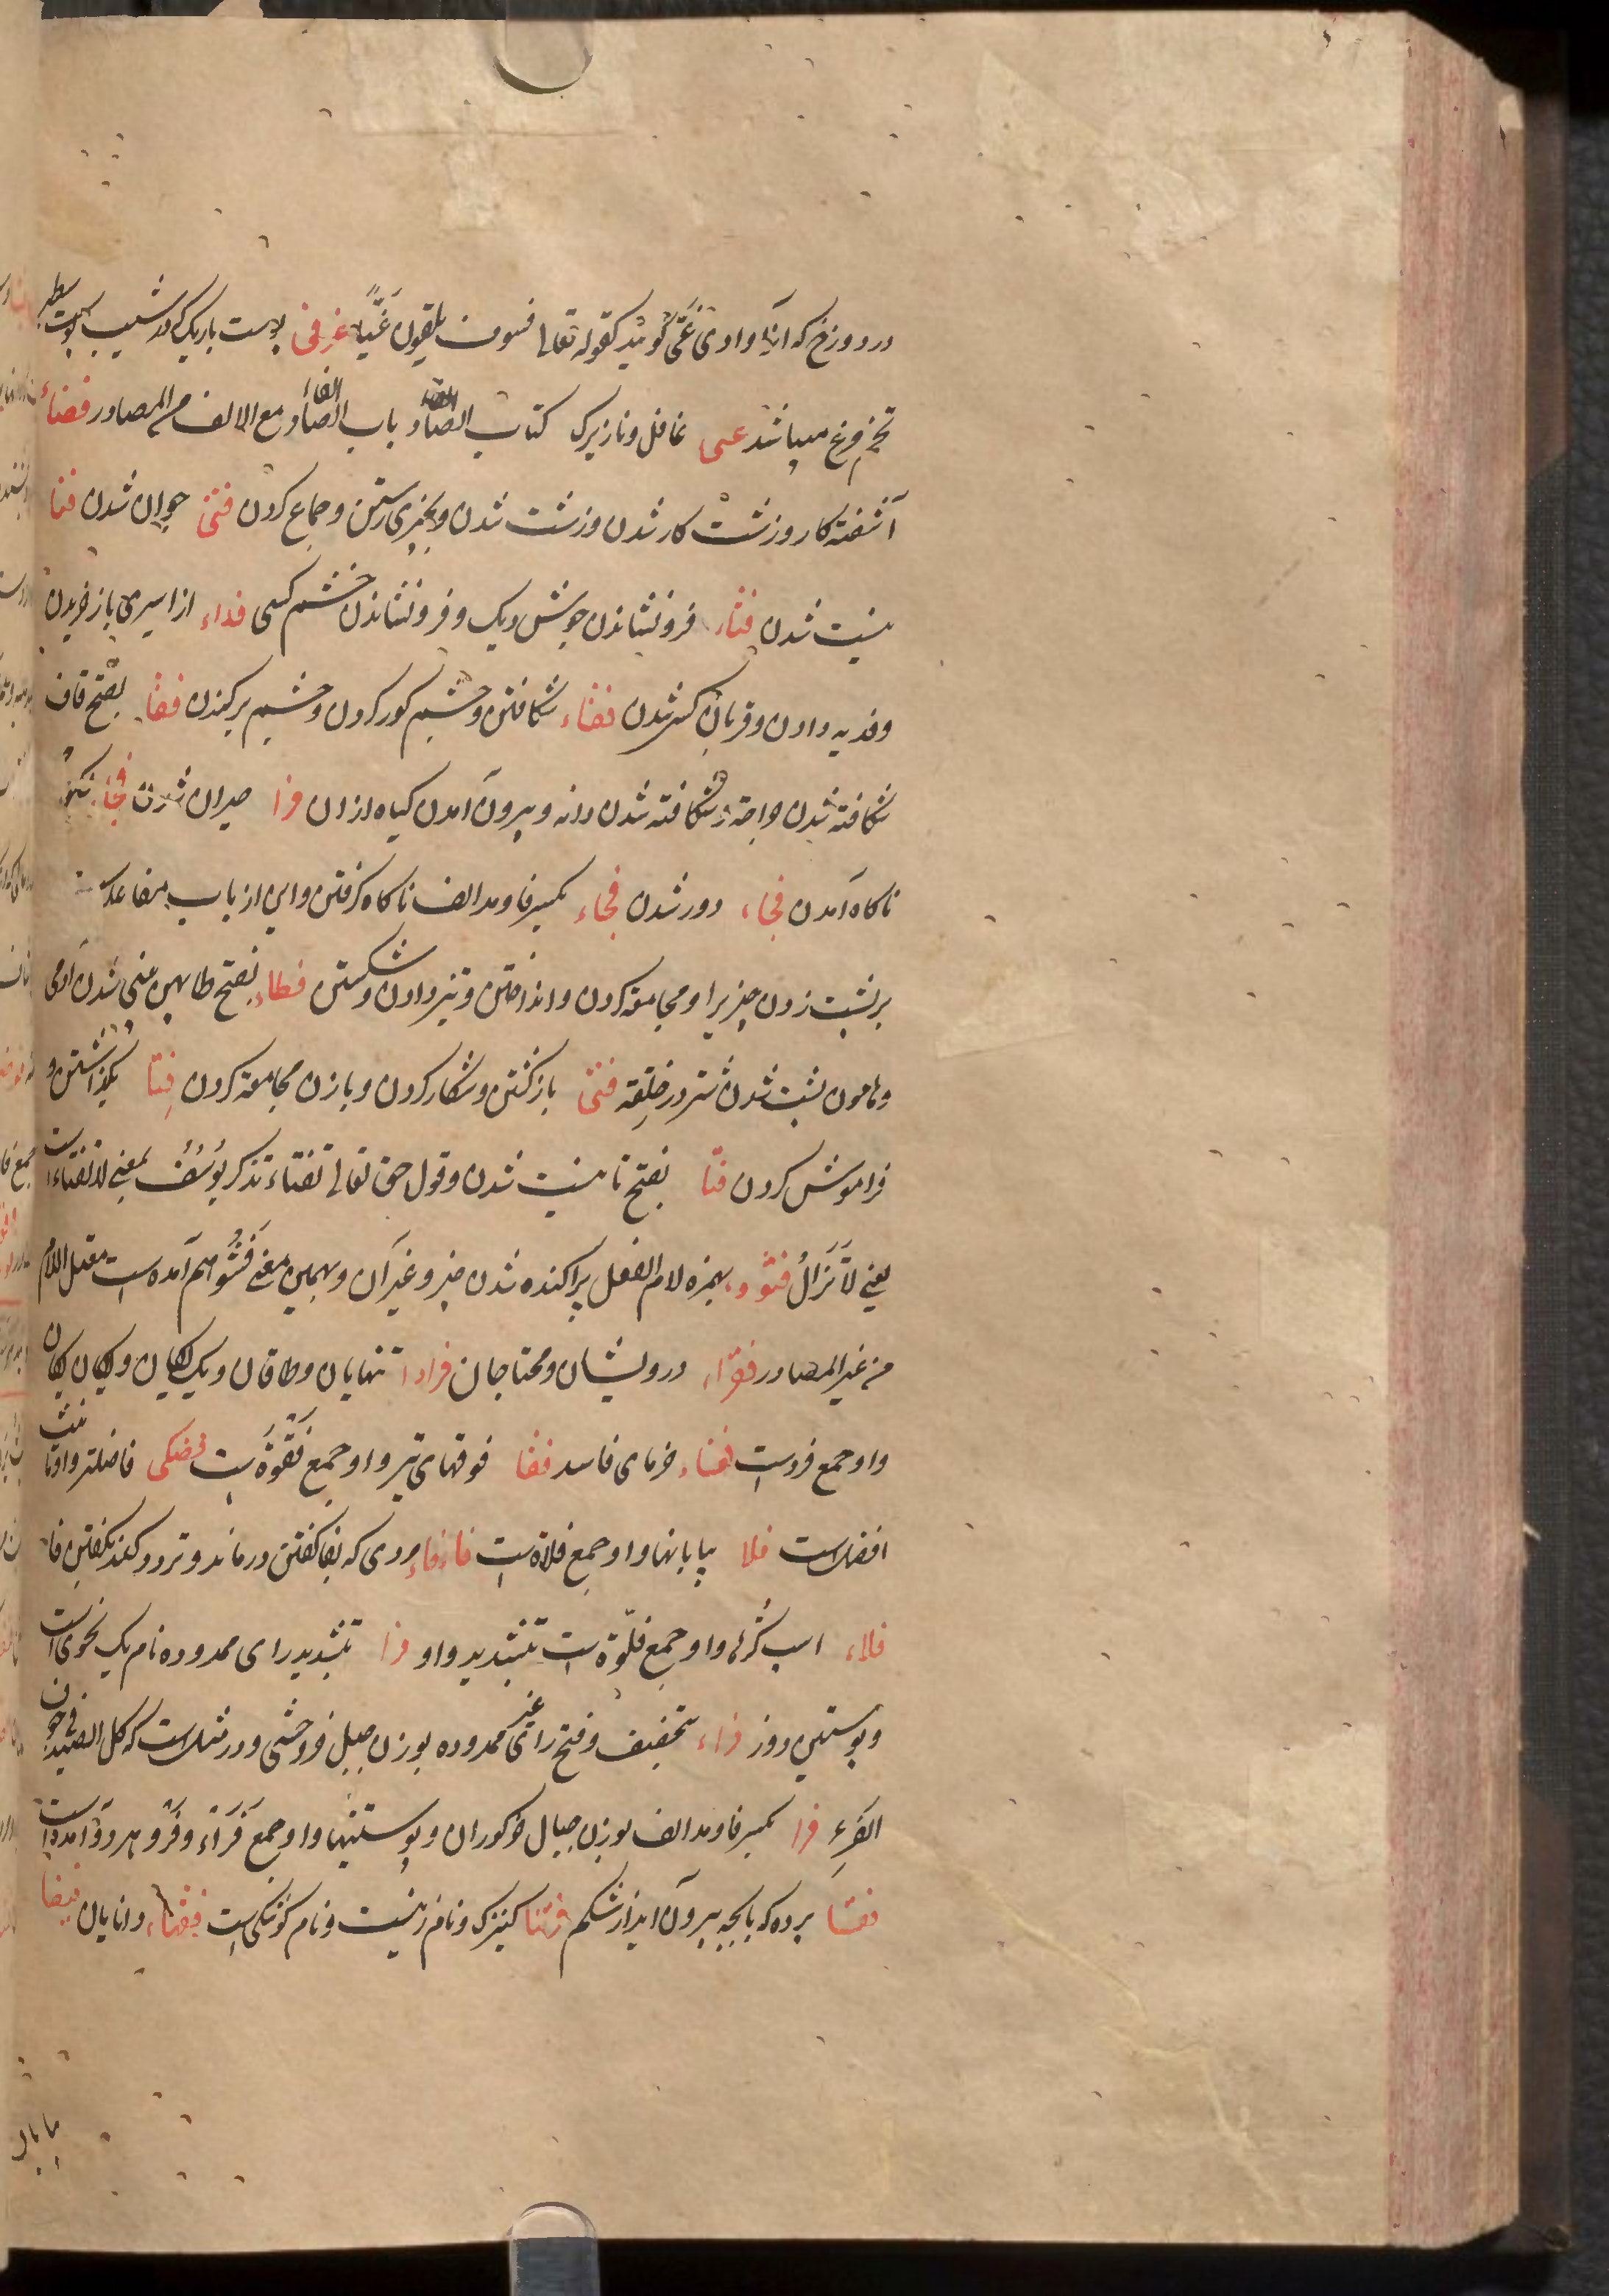 در دوزخ که آنرا وادی غَیّ گویند کقوله تعالی فسوف یلقون غَیًّا غرفی پوست باریک که در شیب پوست سطبر
تخم مرغ میباشد غبی غافل و نازیرک کتاب الفاء باب الفاء مع الالف من المصادر فضاء
آشفته کار و زشت کار شدن و زشت شدن و بخیزی رستن و جماع کردن فتی جوان شدن فنا
نیست شدن فثاء فرونشاندن جوش دیک و فرونشاندن خشم کسی فداء از اسیری باز خریدن
و فدیه دادن و قربان کسی شدن فقاء شکافتن و چشم کور کردن و چشم برکندن فقا بفتح قاف
شکافته شدن جراحت و شکافته شدن دانه و بیرون آمدن کیاه از ان فرا حیران شدن فجاء
ناکاه آمدن فجاء دور شدن فجاء بکسر فا و مد الف ناکاه کرفتن و این از باب مفاعله است
بر پشت زدن چیزیرا و مجامعة کردن و انداختن و تیز دادن و شکستن فطاء بفتح طا پهن بینی شدن آدمی
و هامون پشت شدن شتر در خلقة فتی بازکشتن و شکار کردن و با زن مجامعة کردن فتا بگذاشتن و
فراموش کردن فتا بفتح تا نیست شدن و قول حق تعالی تفتاء تذکر یوسف بمعنی لا تفتاء است
یعنی لا تَزَالُ فشوء بهمزه لام الفعل پراکنده شدن خبر و غیر آن و بهمین معنی فشو هم آمده است معتل اللام
من غیر المصادر فقراء درویشان و محتاجان فرادا تنهایان و طاقان و یک یکان و یکان یکان
و او جمع فرد است فغاء خرمای فاسد فقا فوقهای تیر و او جمع فقوة است فضلی فاضلتر و او تانیث
افضل است فلا بیابانها و او جمع فلاة است فافاء مردی که بفا کفتن درماند و تردد کند بکفتن فا
فلاء اسب کرها و او جمع فلوة است بتشدید واو فرا بتشدید رای ممدوده نام یک نحوی است
و پوستین دوز فراء بتخفیف و فتح رای غیر ممدوده بوزن جبل خر وحشی و در مثل است که کل الصید فی جوف
الفَرِء فرا بکسر فا و مد الف بوزن جبال خر کوران و پوستینها و او جمع فَرَاء و فَرْو هر دو آمده است
فقا پرده که با بچه بیرون آید از شکم فرتنا کنیزک و نام زنیست و نام کوشکی است فقهاء دانایان فیفا
بیابان